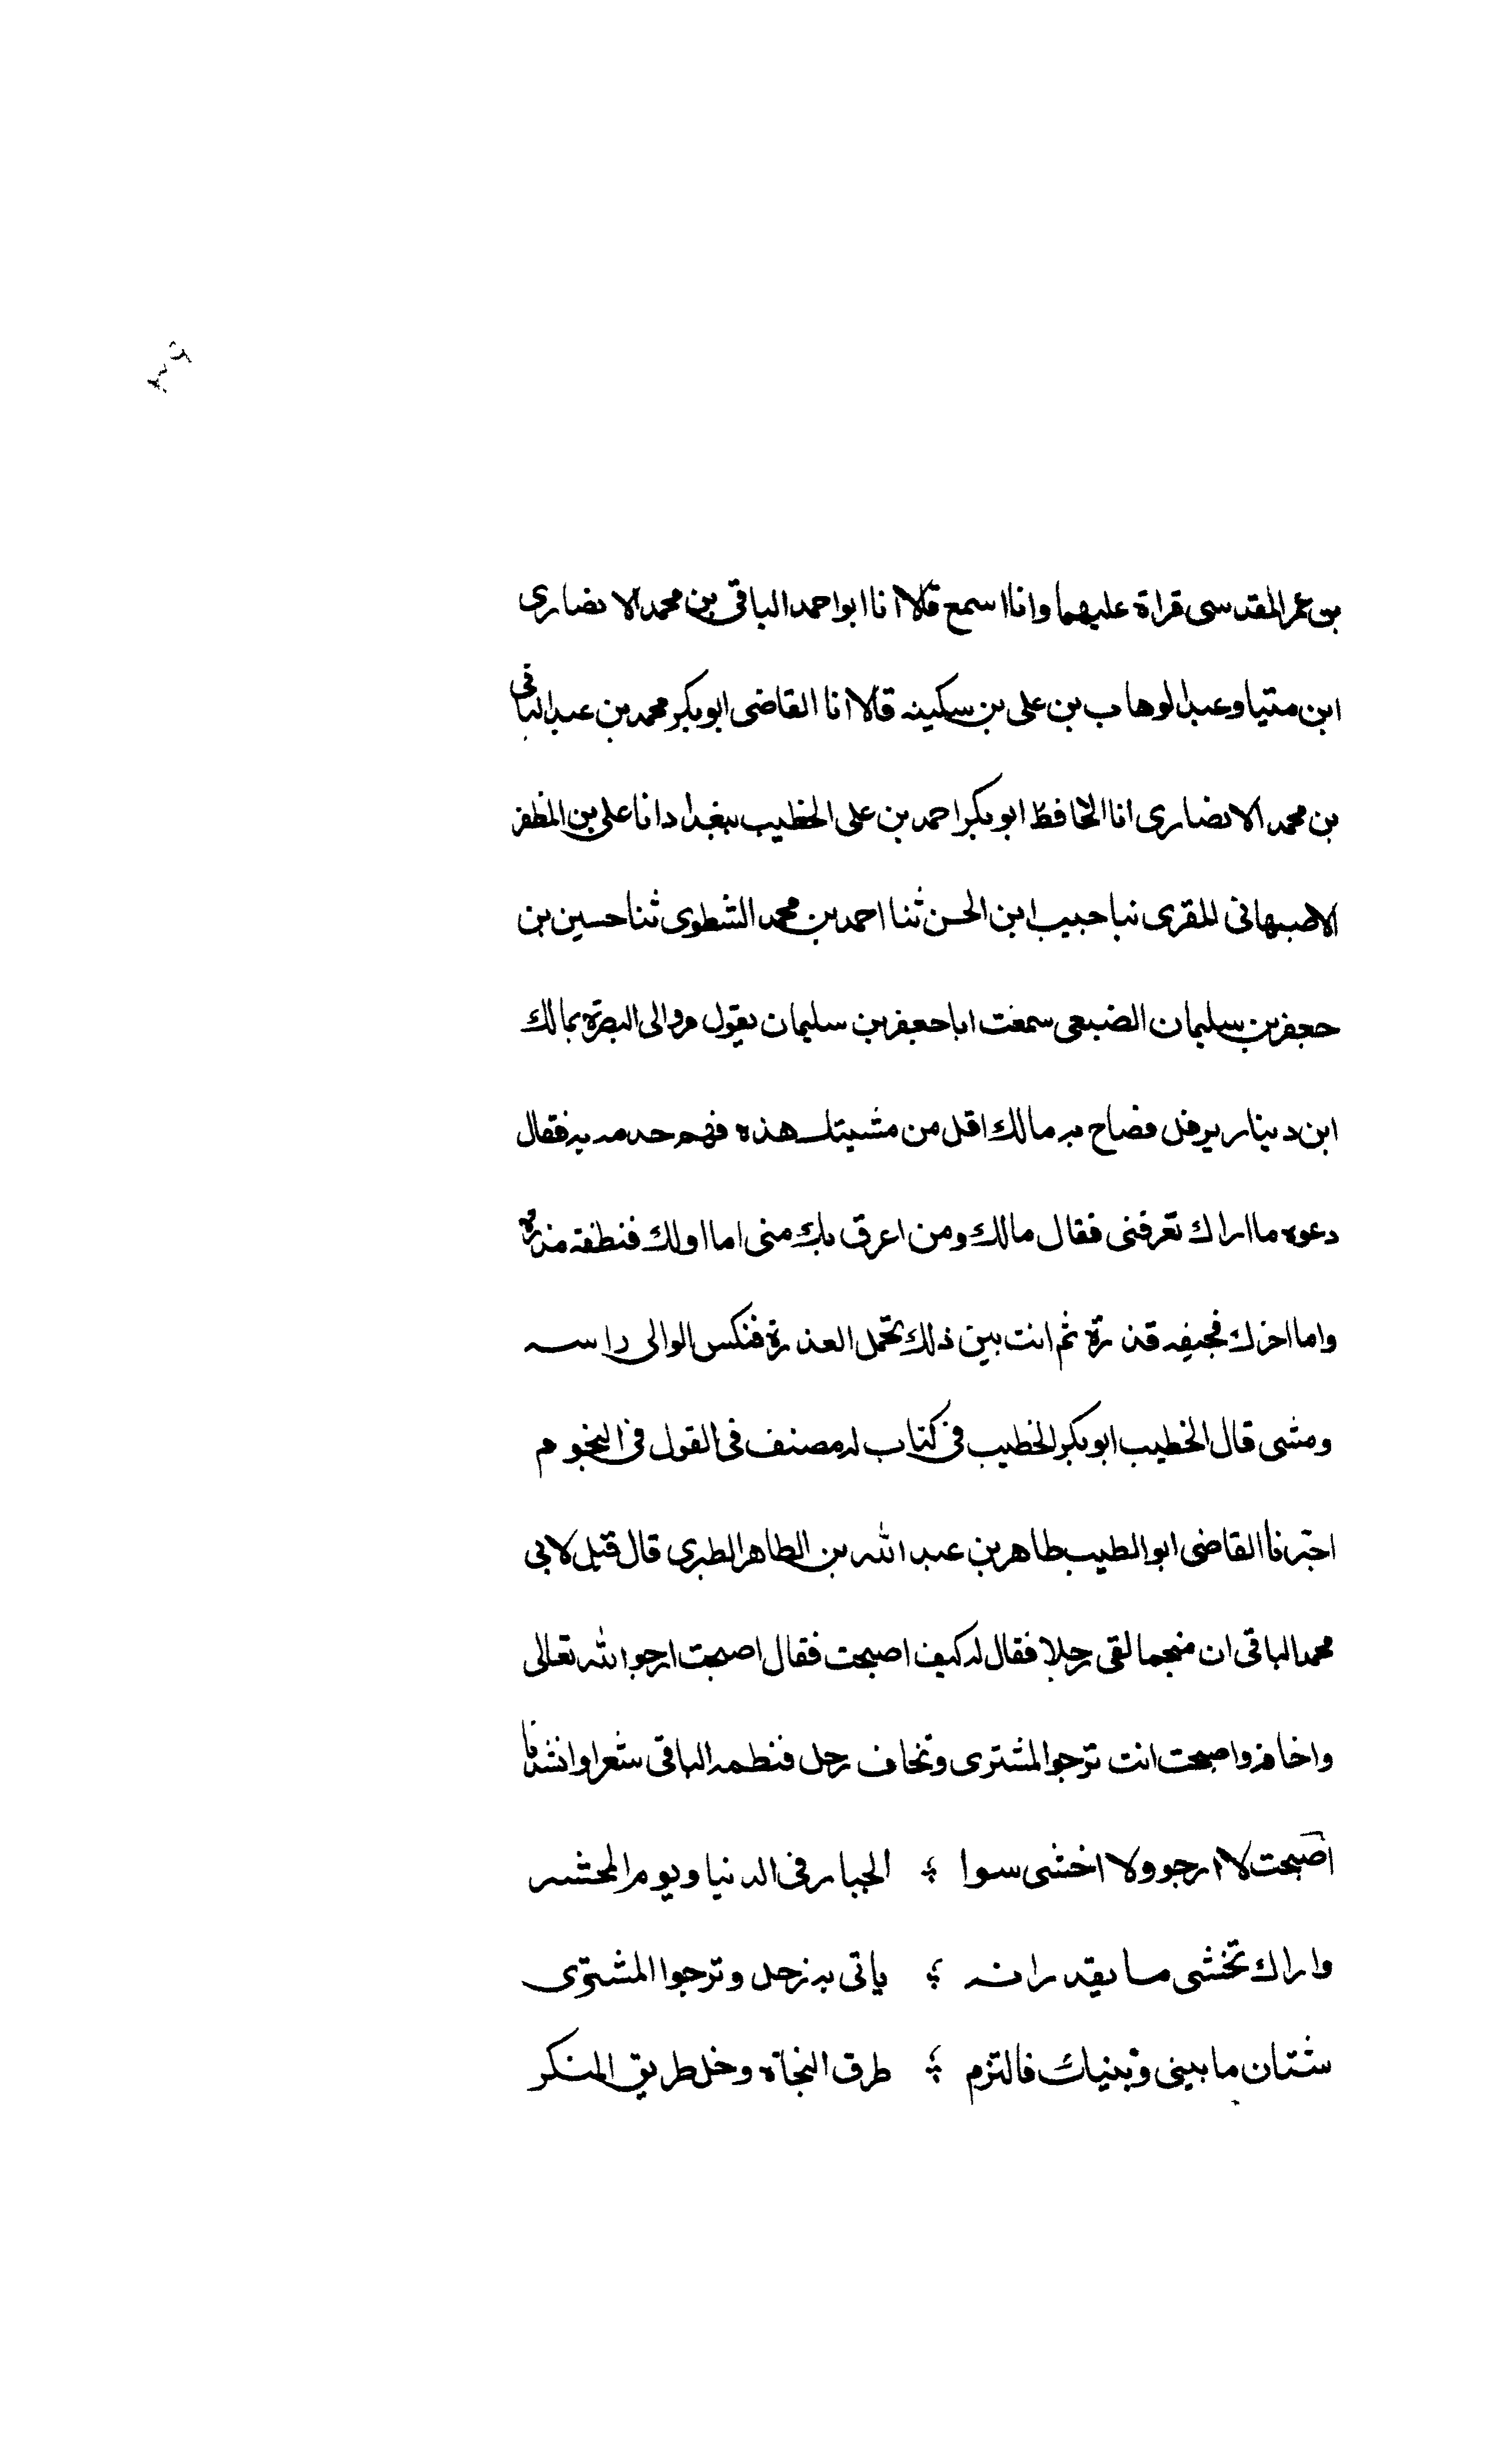 بن عمر المقدسى قراة عليهما وانا اسمع قالا انا ابو احمد الباقى بن محمد الانصارى
ابن متيا وعبد الوهاب بن على بن سكينه قالا انا القاضى ابو بكر محمد بن عبد الباقى
بن محمد الانصارى انا الحافظ ابو بكر احمد بن على الخطيب ببغداد انا على بن المظفر
الاصبهانى المقرى نبا حبيب ابن الحسن ثنا احمد بن محمد الشطوى ثنا حسين بن
جعفر بن سليمان الضبعى سمعت ابا جعفر بن سليمان يقول مر والى البصرة بمالك
ابن دينار يرفل فصاح به مالك اقل من مشيتك هذه فهم خدمه به فقال
دعوه ما اراك تعرفنى فقال مالك ومن اعرف بك منى اما اولك فنطفه مذرة
واما اخرك فجيفه قذرة ثم انت بين ذلك تحمل العذرة فنكس الوالى راسه
ومشى قال الخطيب ابو بكر الخطيب فى كتاب له مصنف فى القول فى النجوم
اخبرنا القاضى ابو الطيب طاهر بن عبد الله بن الطاهر الطبرى قال قيل لابى
محمد الباقى ان منجما لقى رجلا فقال له كيف اصبحت فقال اصبحت ارجو الله تعالى
واخافه واصبحت انت ترجو المشترى وتخاف زحل فنظمه الباقى شعرا وانشدنا
اصبحت لا ارجو ولا اخشى سوا ؛ الجبار فى الدنيا ويوم المحشر
واراك تخشى ما يقدر انه ؛ ياتى به زحل وترجوا المشترى
شتان ما بينى وبينك فالتزم ؛ طرق النجاة وخل طريق المنكر